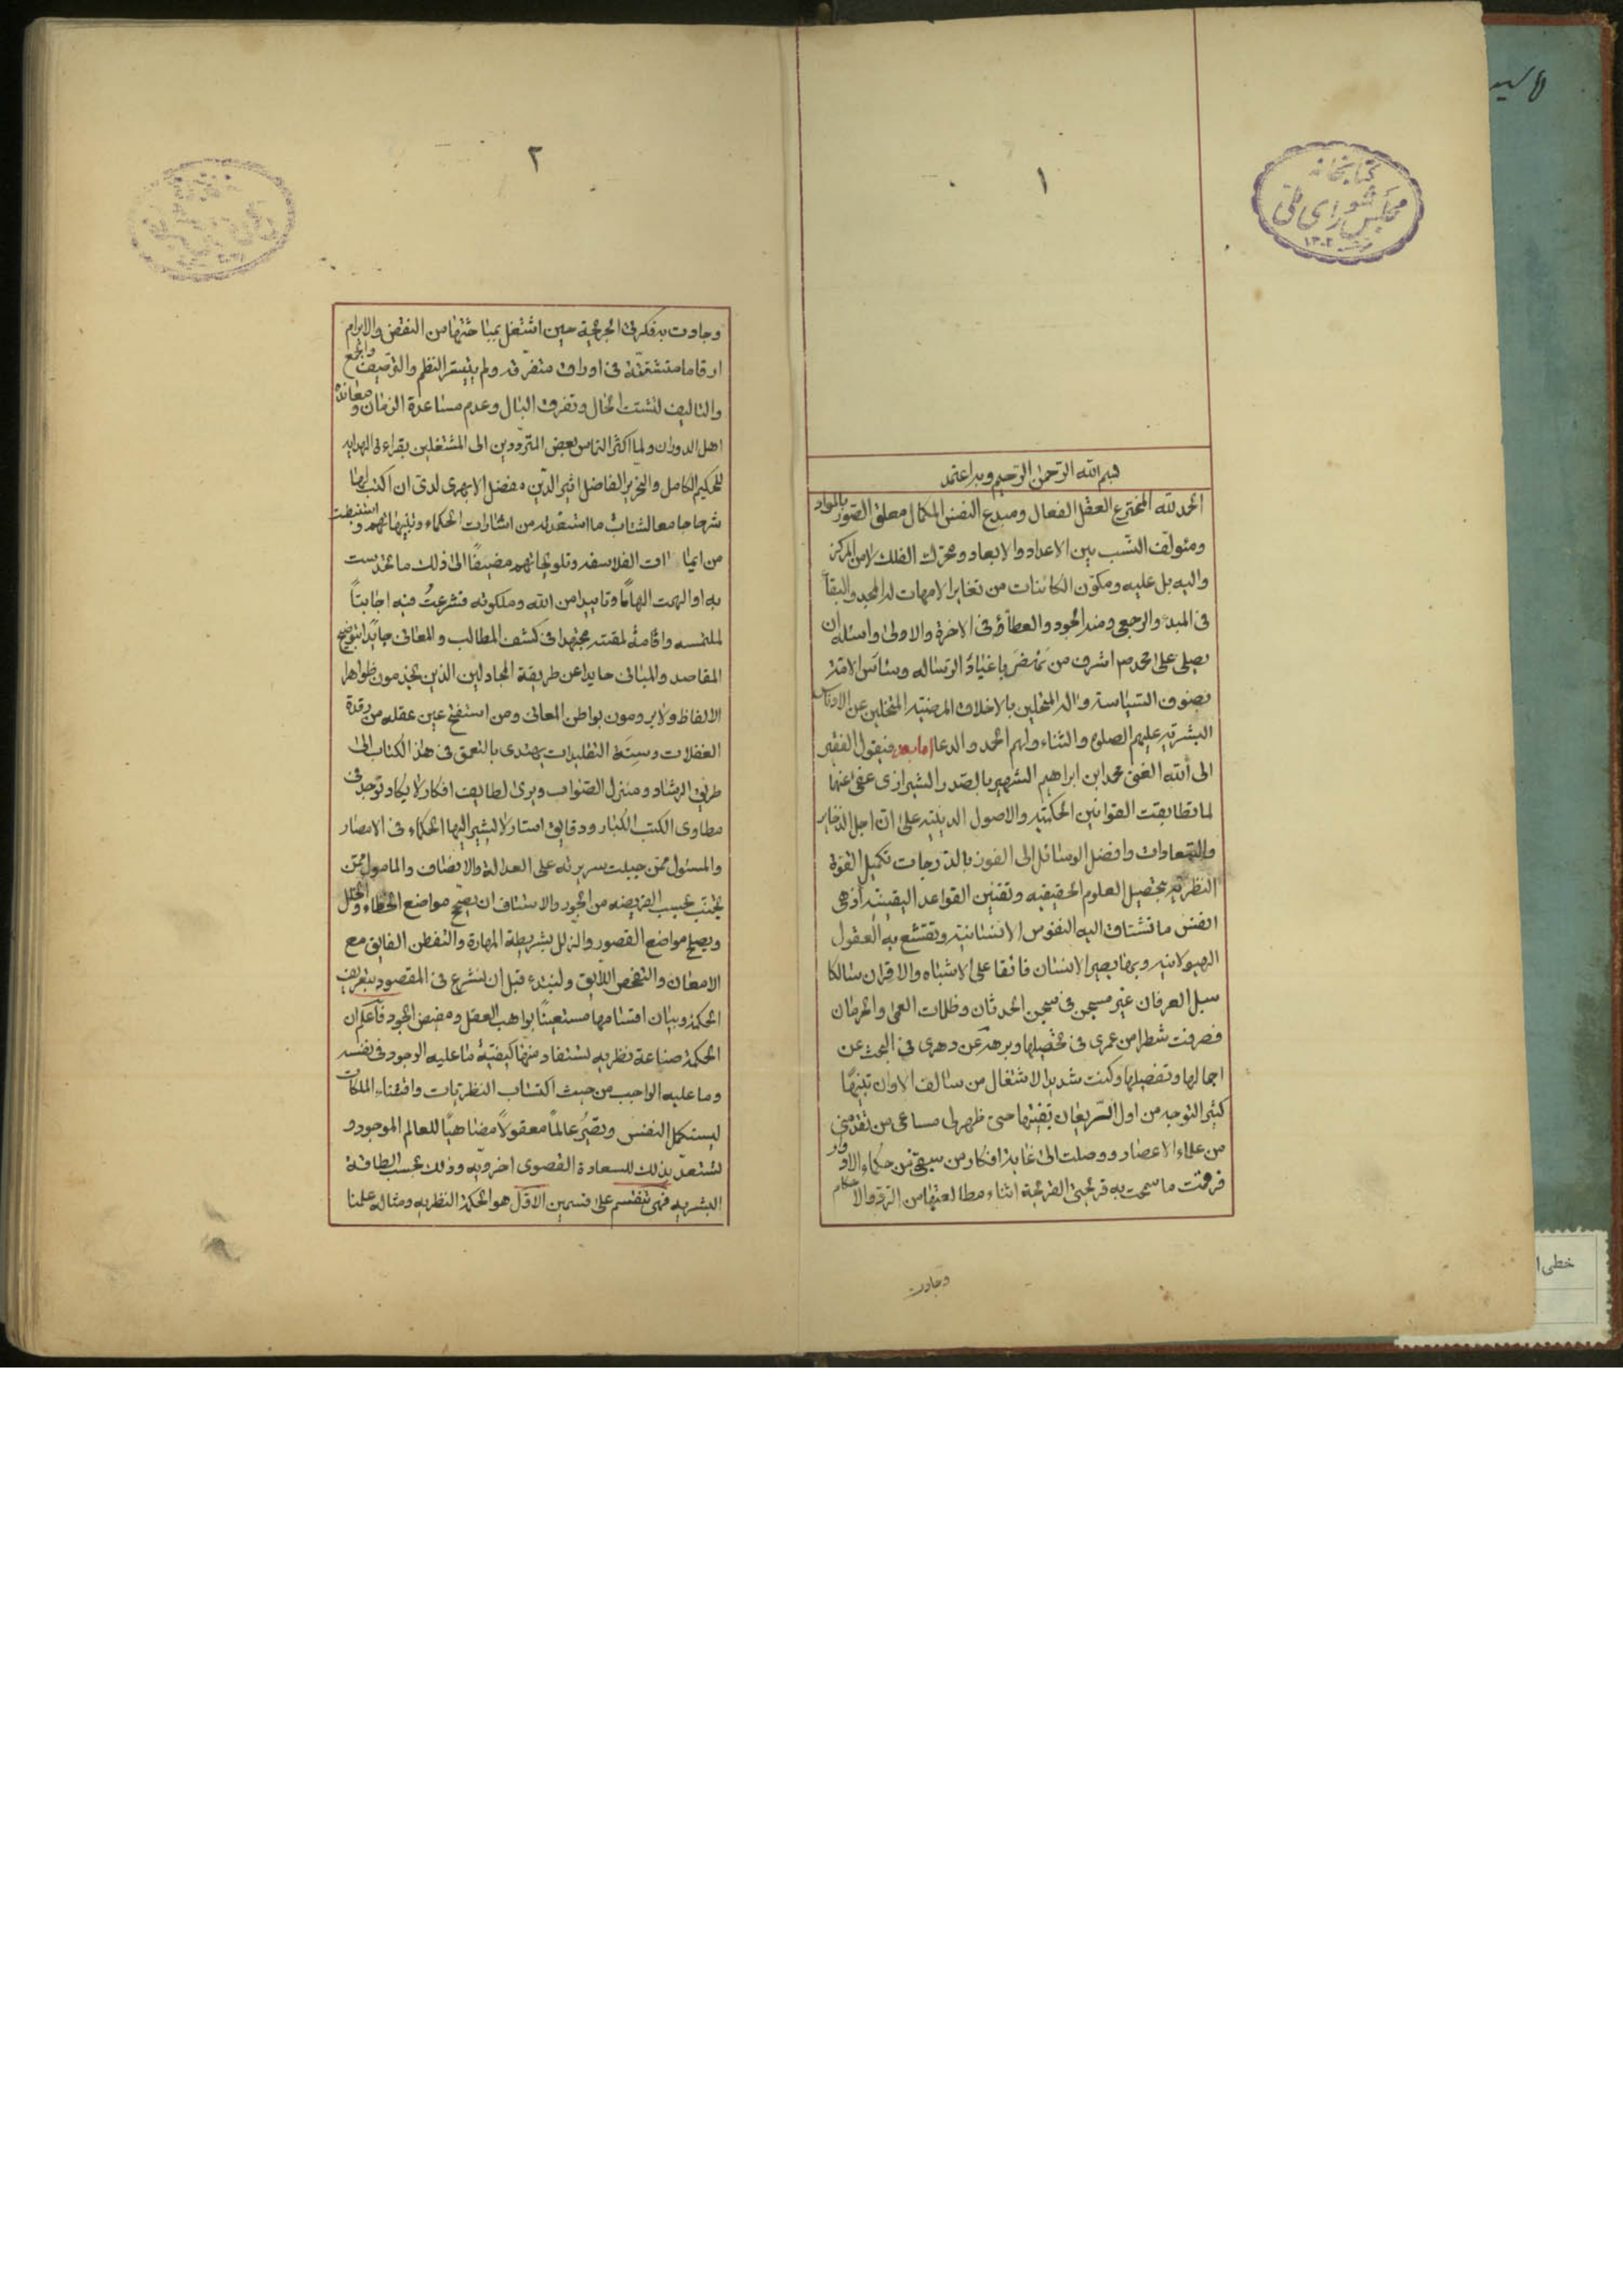 ١
كتابخانه
مجلس شورای ملی
١٣٠٢
بسم الله الرحمن الرحیم وبه اعتمد
الحمد لله المخترع العقل الفعال ومبدع النفس الکمال معلق الصور بالمواد
ومئولف النسب بین الاعداد والابعاد ومحرك الفلك لا من المرکز
والیه بل علیه ومکون الکائنات من تغایر الامهات له المجد والبقآ
فی المبدء والرجعی ومنه الجود والعطآء فی الاخرة والاولی واسئله ان
یصلی علی محمد اشرف من باعباء الرساله وسائس الامة
بصنوف السیاسة واله المتحلین بالاخلاق المرضیه المتخلین عن الادناس
البشریه علیهم الصلوة والثناء ولهم الحمد والدعا اما بعد فیقول الفقیر
الی الله الغنی محمد ابن ابراهیم الشهیر بالصدر الشیرازی عفی عنهما
لما تطابقت القوانین الحکمیه والاصول الدینیه علی ان اجل الذخایر
والسعادات وافضل الوسائل الی الفوز بالدرجات تکمیل القوة
النظریه بتحصیل العلوم الحقیقیه وتقنین القواعد الیقینیه اذ هی
انفس ما تشتاق الیه النفوس الانسانیه وتقتنع به العقول
الهیولانیه وبها یصیر الانسان فائقا علی الاشباه والاقران سالکا
سبل العرفان غیر مسجن فی سجن الحدثان وظلمات العمی والحرمان
فصرفت شطرا من عمری فی تحصیلها وبرهة عن دهری فی البحث عن
اجمالها وتفصیلها وکنت شدید الاشتغال من سالف الاوان
کثیر التوجه من اول الریعان حتی ظهر لی مساعی من تقدمنی
من علماء الاعصار ووصلت الی غایة افکار من سبقنی من حکماء الادوار
فرقمت ما سمحت به قریحتی القریحة اثناء مطالعتها من الرد والاحکام
وجادت
٢
وجادت به فکرتی الجریحة حین اشتغل بمباحثتها من النقض والابرام
ارقاما متشتتة فی اوراق متفرقه ولم یتیسر النظم والتوصیف والجمع
والتالیف لتشتت الحال وتفرق البال وعدم مساعدة الزمان ومعاندة
اهل الدوران ولما اکثر التماس بعض المترددین الی المشتغلین بقراءة الهدایه
للحکیم الکامل والنحریر الفاضل اثیر الدین مفضل الابهری لدی ان اکتب لها
شرحا جامعا لشتات ما استفدته من اشارات الحکماء وتنبیهاتهم واستنبطت
من ایماءات الفلاسفه وتلویحاتهم مضیفا الی ذلك ما تحدست
به او الهمت الهاما وتاییدا من الله وملکوته فشرعت فیه اجابتا
لملتمسه واقامة لمقتره مجتهدا فی کشف المطالب والمعانی بتوضیح
المقاصد والمبانی حایدا عن طریقة المجادلین الذین یخدمون ظواهر
الالفاظ ولا یرومون بواطن المعانی ومن استفتح عین عقله من رقدة
الغفلات وسنة التقلیدات یهتدی بالتعمق فی هذا الکتاب الی
طریق الرشاد ومنزل الصواب ویری لطایف افکار لا یکاد توجد فی
مطاوی الکتب الکبار ودقایق اسرار لا یشیر الیها الحکماء فی الامصار
والمسئول ممن جبلت سریرته علی العدالة والانصاف والمامول ممن
یجتنب بحسب الفریضه من الجور والاعتساف ان یصحح مواضع الخطاء والخلل
ویصلح مواضع القصور والزلل بشریطة المهارة والتفطن الفایق مع
الامعان والتفحص اللایق ولنبتدء قبل ان نشرع فی المقصود بتعریف
الحکمة وبیان اقسامها مستعینا بواهب العقل ومفیض الجود فاعلم ان
الحکمة صناعة نظریه یستفاد منها کیفیة ما علیه الوجود فی نفسه
وما علیه الواجب من حیث اکتساب النظریات واقتناء الملکات
لیستکمل النفس وتصیر عالما معقولا مضاهیا للعالم الموجود و
لتستعد بذلك للسعادة القصوی اخرویه وذلك بحسب الطاقة
البشریه فهی تنقسم علی قسمین الاول هو الحکمة النظریه ومثاله علمنا
خطی